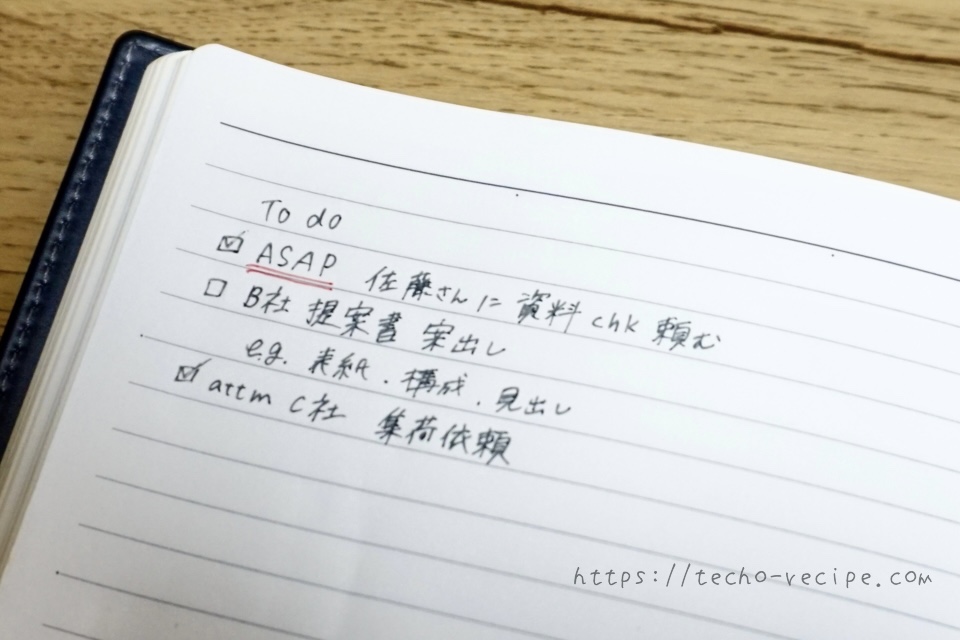 To do
☑ ASAP 佐藤さんに 資料 chk 頼む
☐ B社 提案書 案出し
e.g. 表紙・構成・見出し
☑ attm C社 集荷依頼
https://techo-recipe.com